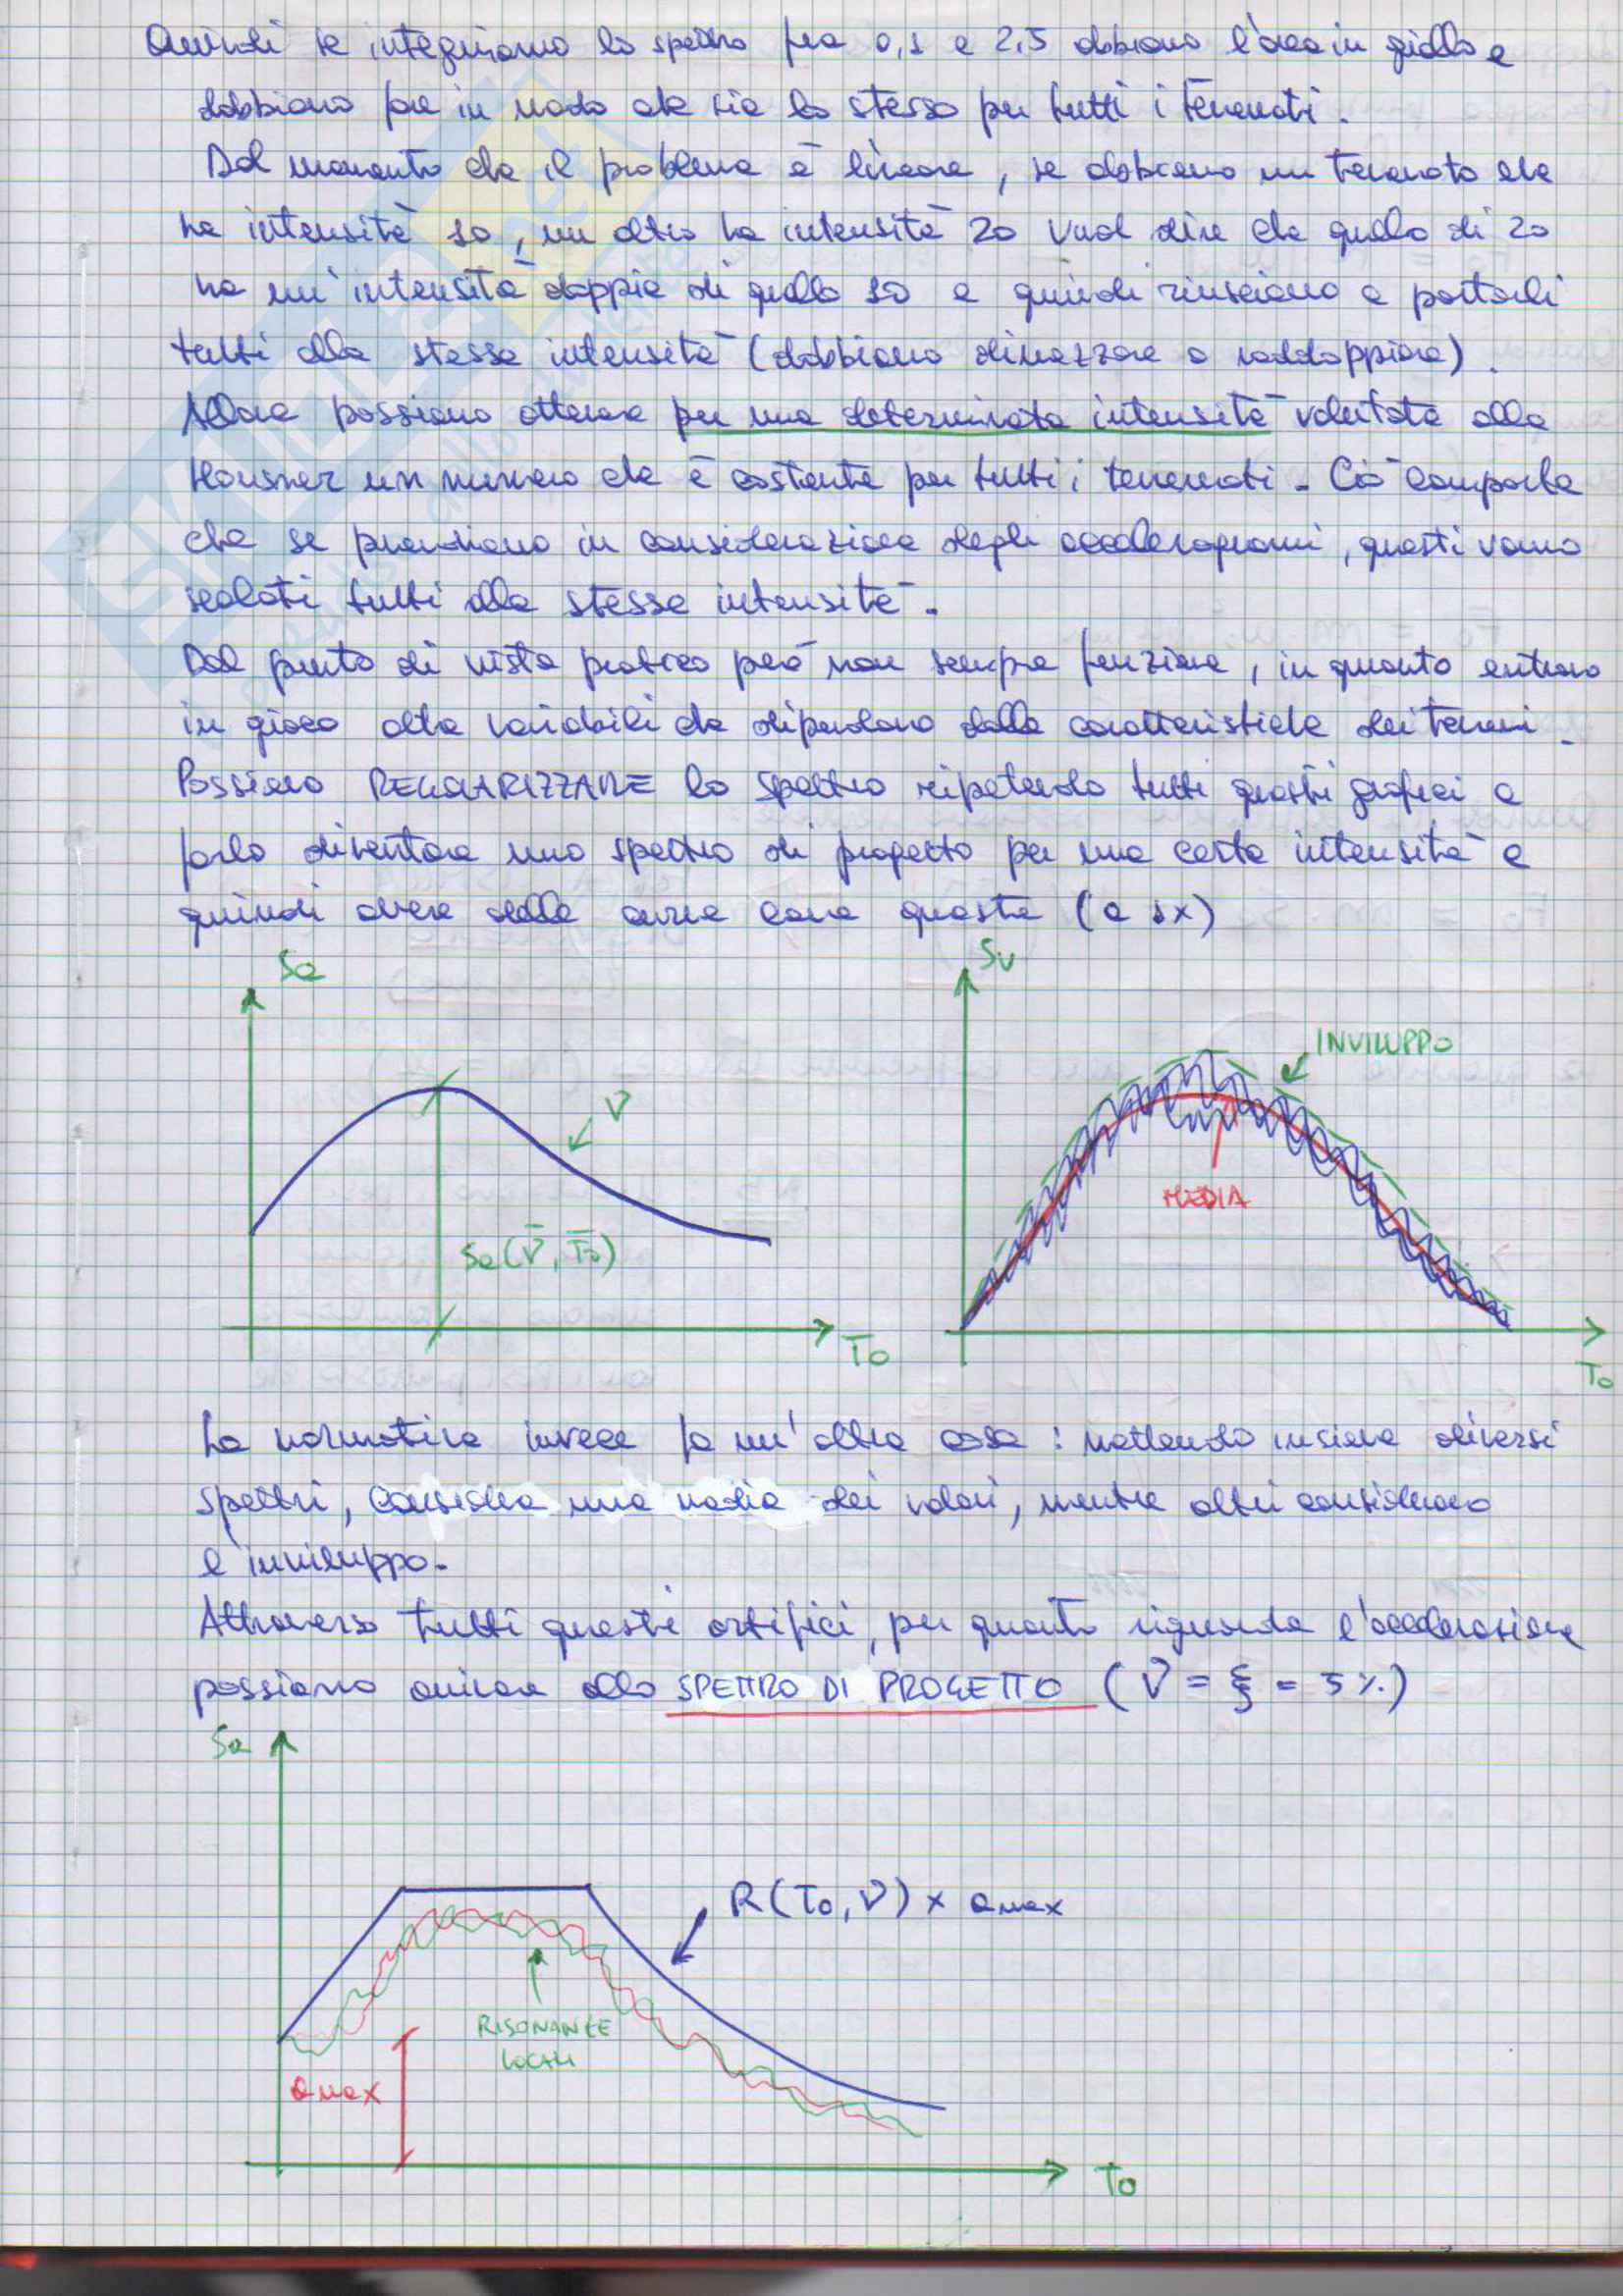 Quindi se integriamo lo spettro fra 0,1 e 2,5 abbiamo l'area in giallo e
dobbiamo fare in modo che sia lo stesso per tutti i terremoti.
Dal momento che il problema è lineare, se abbiamo un terremoto che
ha intensità 10, un altro ha intensità 20 vuol dire che quello di 20
ha un'intensità doppia di quello 10 e quindi riusciamo a portarli
tutti alla stessa intensità (dobbiamo dimezzare o raddoppiare).
Allora possiamo ottenere per una determinata intensità valutata alla
Housner un numero che è costante per tutti i terremoti. Ciò comporta
che se prendiamo in considerazione degli accelerogrammi, questi vanno
scalati tutti alla stessa intensità.
Dal punto di vista pratico però non sempre funziona, in quanto entrano
in gioco altre variabili che dipendono dalle caratteristiche dei terreni.
Possiamo REGOLARIZZARE lo spettro ripetendo tutti questi grafici e
farlo diventare uno spettro di progetto per una certa intensità e
quindi avere delle curve come queste (a sx)
Sa
Sv
INVILUPPO
ν
MEDIA
Sa(ν̄, T̄o)
To
To
La normativa invece fa un'altra cosa: mettendo insieme diversi
spettri, considera una media dei valori, mentre altri considerano
l'inviluppo.
Attraverso tutti questi artifici, per quanto riguarda l'accelerazione
possiamo arrivare allo SPETTRO DI PROGETTO (ν = ξ = 5%)
Sa
R(To, ν) x amax
RISONANZE
LOCALI
amax
To